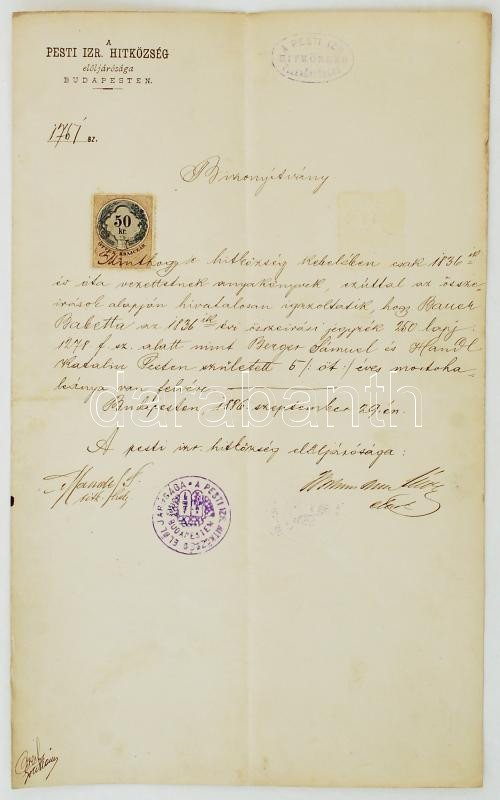 A
PESTI IZR. HITKÖZSÉG
elöljárósága
BUDAPESTEN.
A PESTI IZR.
HITKÖZSÉG
1761 sz.
Bizonyitvány
50
kr.
Minthogy a hitközség kebelében csak 1836 ik
év óta vezettetnek anyakönyvek, ezúttal az össze-
irások alapján hivatalosan igazoltatik, hogy Bauer
Babetta az 1836 iki évi összeirási jegyzék 250 lapj.
1278 f. sz. alatt mint Berger Sámuel és Handl
Katalin Pesten született 5 /: öt :/ éves mostoha-
leánya van felvéve.
Budapesten 1886 szeptember 29 én.
A pesti izr. hitközség elöljárósága:
A PESTI IZR. HITKÖZSÉG ELÖLJÁRÓSÁGA
BUDAPESTEN
darabanth